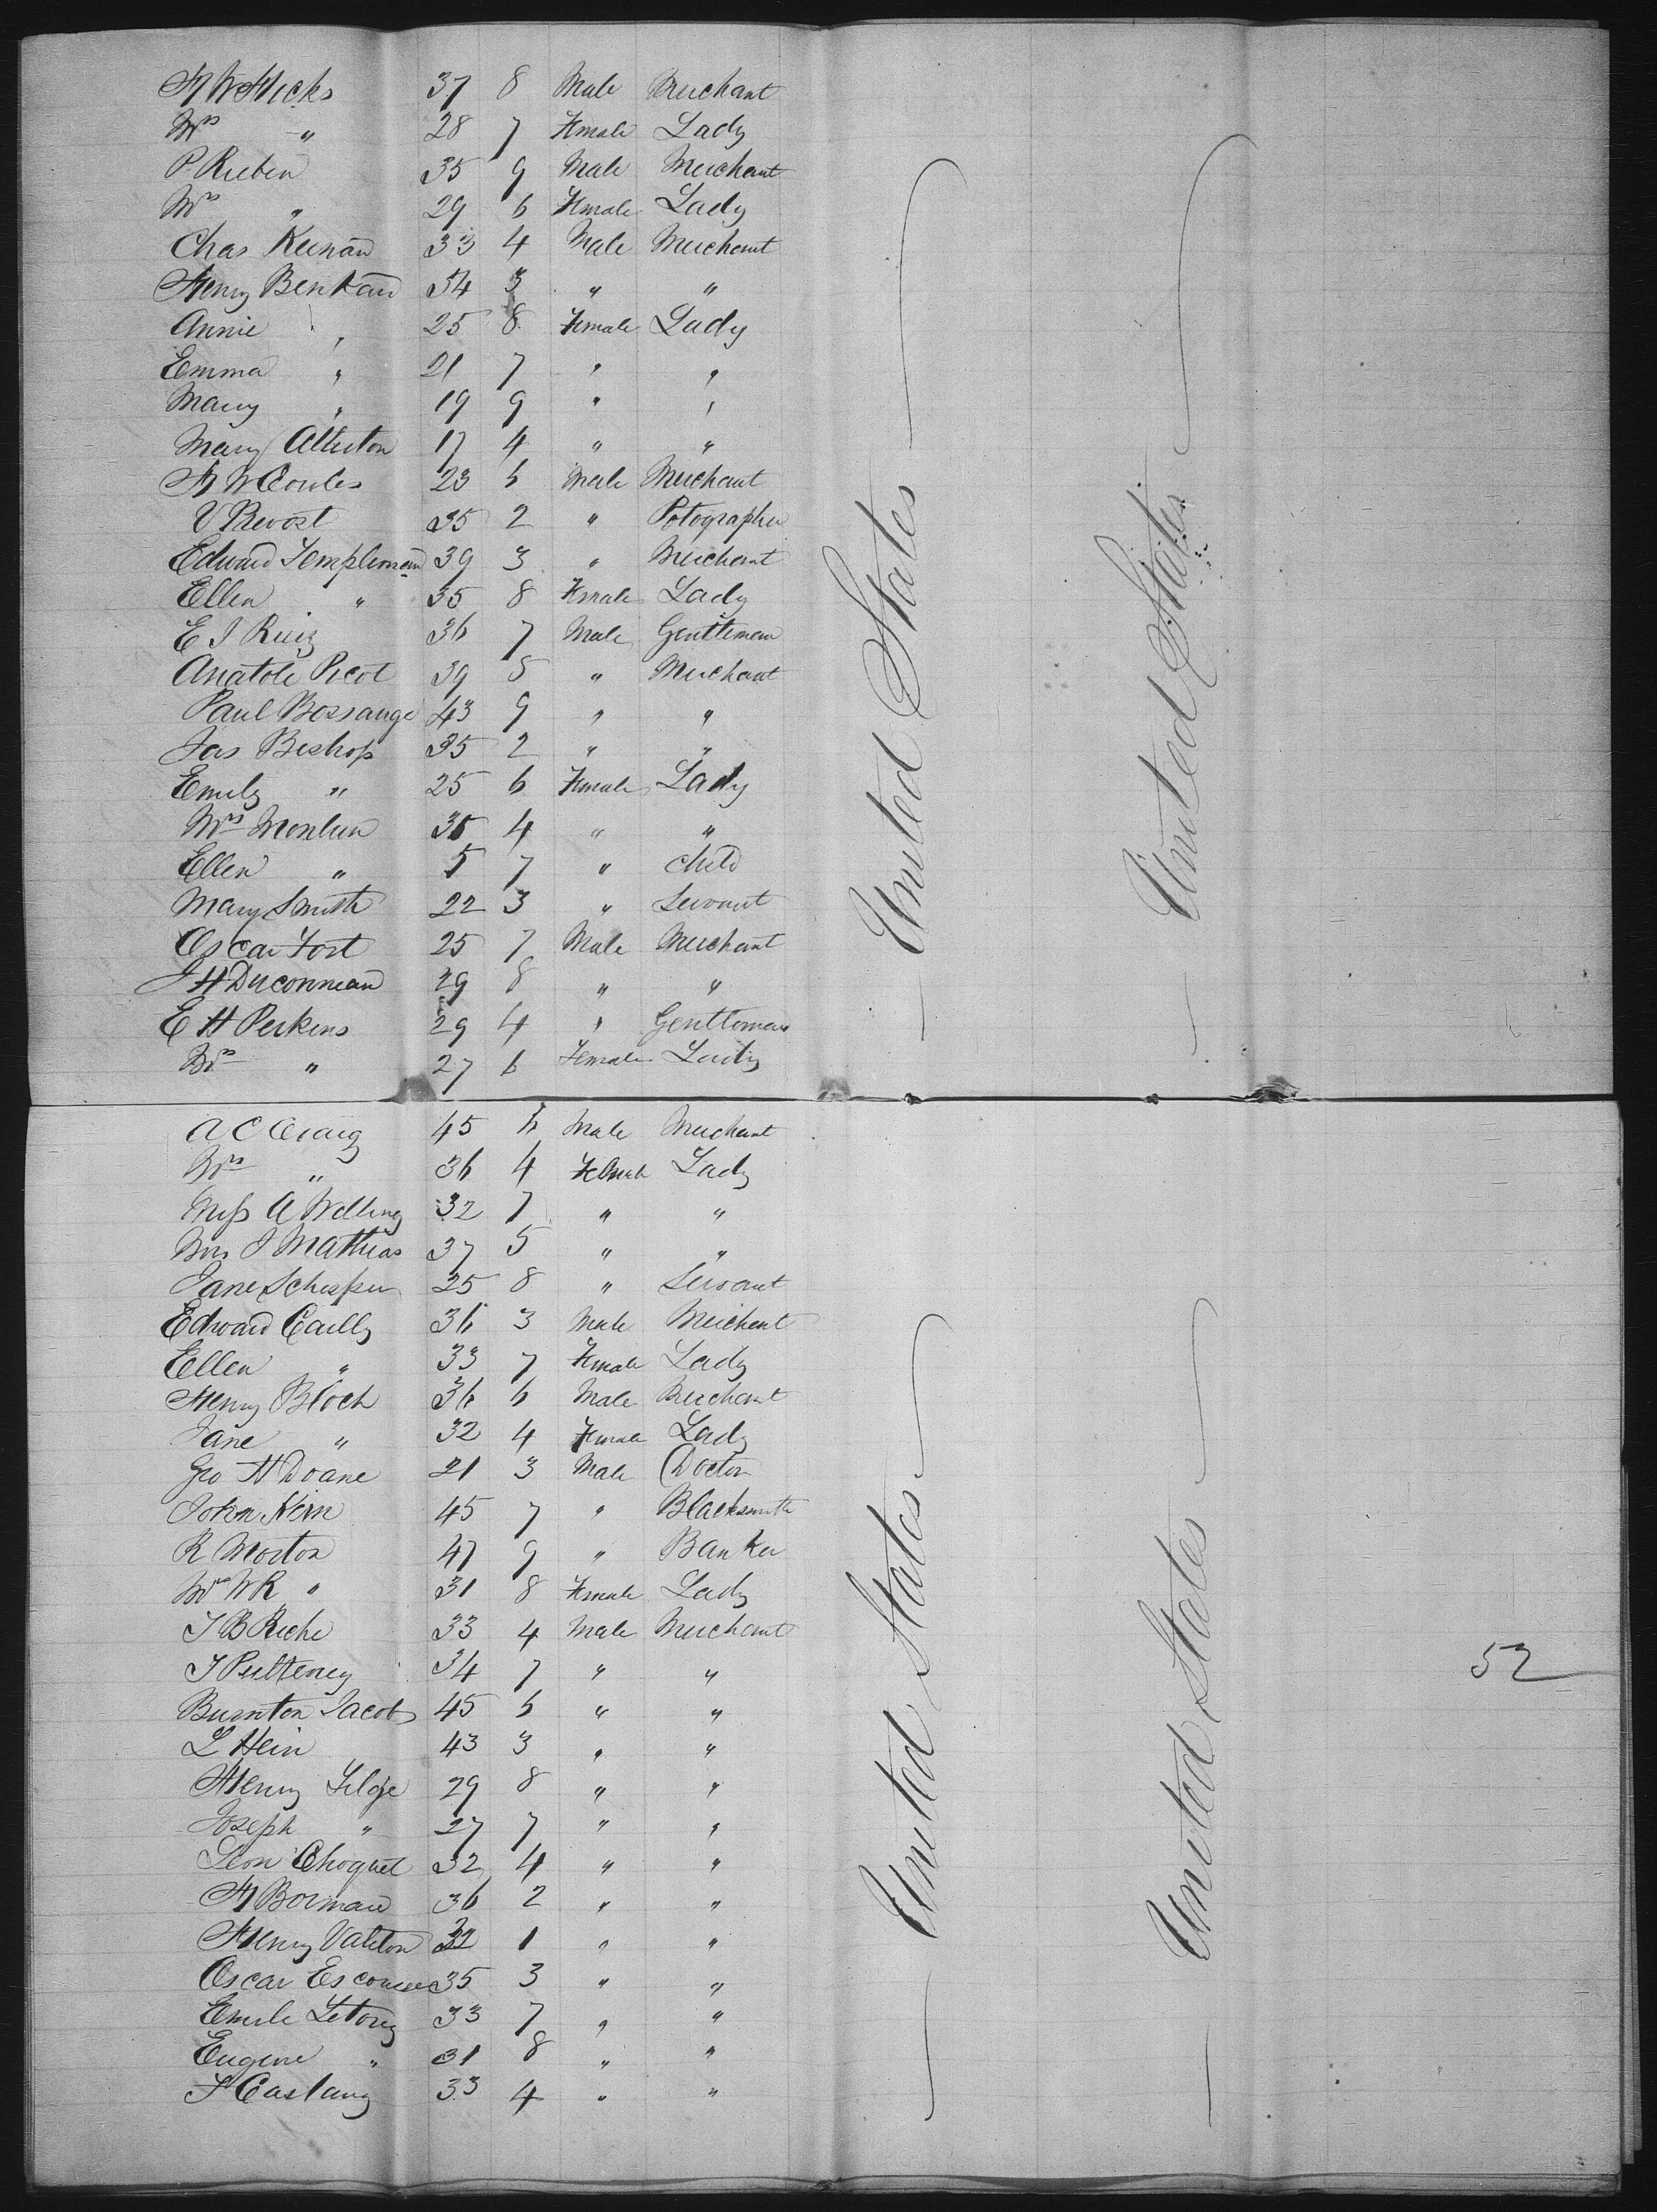 H W Hicks 37 8 Male Merchant
Mrs " 28 7 Female Lady
P. Rieben 35 9 Male Merchant
Mrs " 29 6 Female Lady
Chas Keenan 33 4 Male Merchant
Henry 54 3 " "
Annie " 25 8 Female Lady
Emma " 21 7 " "
Mary " 19 9 " "
Mary Atherton 17 4 " "
H W Cowles 23 6 Male Merchant
V Prevost 35 2 " Potographer
Edward Templeman 39 3 " Merchant
Ellen " 35 8 Female Lady
E J Ruiz 36 7 Male Gentleman
Anatole Picot 39 5 " Merchant
Paul Bossange 43 9 " "
Jas Bishop 35 2 " "
Emily " 25 6 Female Lady
Mrs 35 4 " "
Ellen " 5 7 " Child
Mary Smith 22 3 " Servant
Oscar Fort 25 7 Male Merchant
J H Duconneau 29 8 " "
E H Perkins 29 4 " Gentleman
Mrs " 27 6 Female Lady
United States
United States
A C Craig 45 6 Male Merchant
Mrs " 36 4 Female Lady
Miss A Welling 32 7 " "
Mrs J Mathias 37 5 " "
Jane 25 8 " Servant
Edward Cailly 36 3 Male Merchant
Ellen " 33 7 Female Lady
Henry Bloch 36 6 Male Merchant
Jane " 32 4 Female Lady
Geo H Doane 21 3 Male Doctor
John Kirn 45 7 " Blacksmith
R Morton 47 9 " Banker
Mrs W R " 31 8 Female Lady
J B Riche 33 4 Male Merchant
J Pulteney 34 7 " "
Burnton Jacobs 45 6 " "
L Hein 43 3 " "
Henry 29 8 " "
Joseph " 27 7 " "
Leon Choquet 32 4 " "
H Borman 36 2 " "
Henry Valiton 32 1 " "
Oscar 35 3 " "
Emile Letorey 33 7 " "
Eugene " 31 8 " "
F Castang 33 4 " "
United States
United States
52